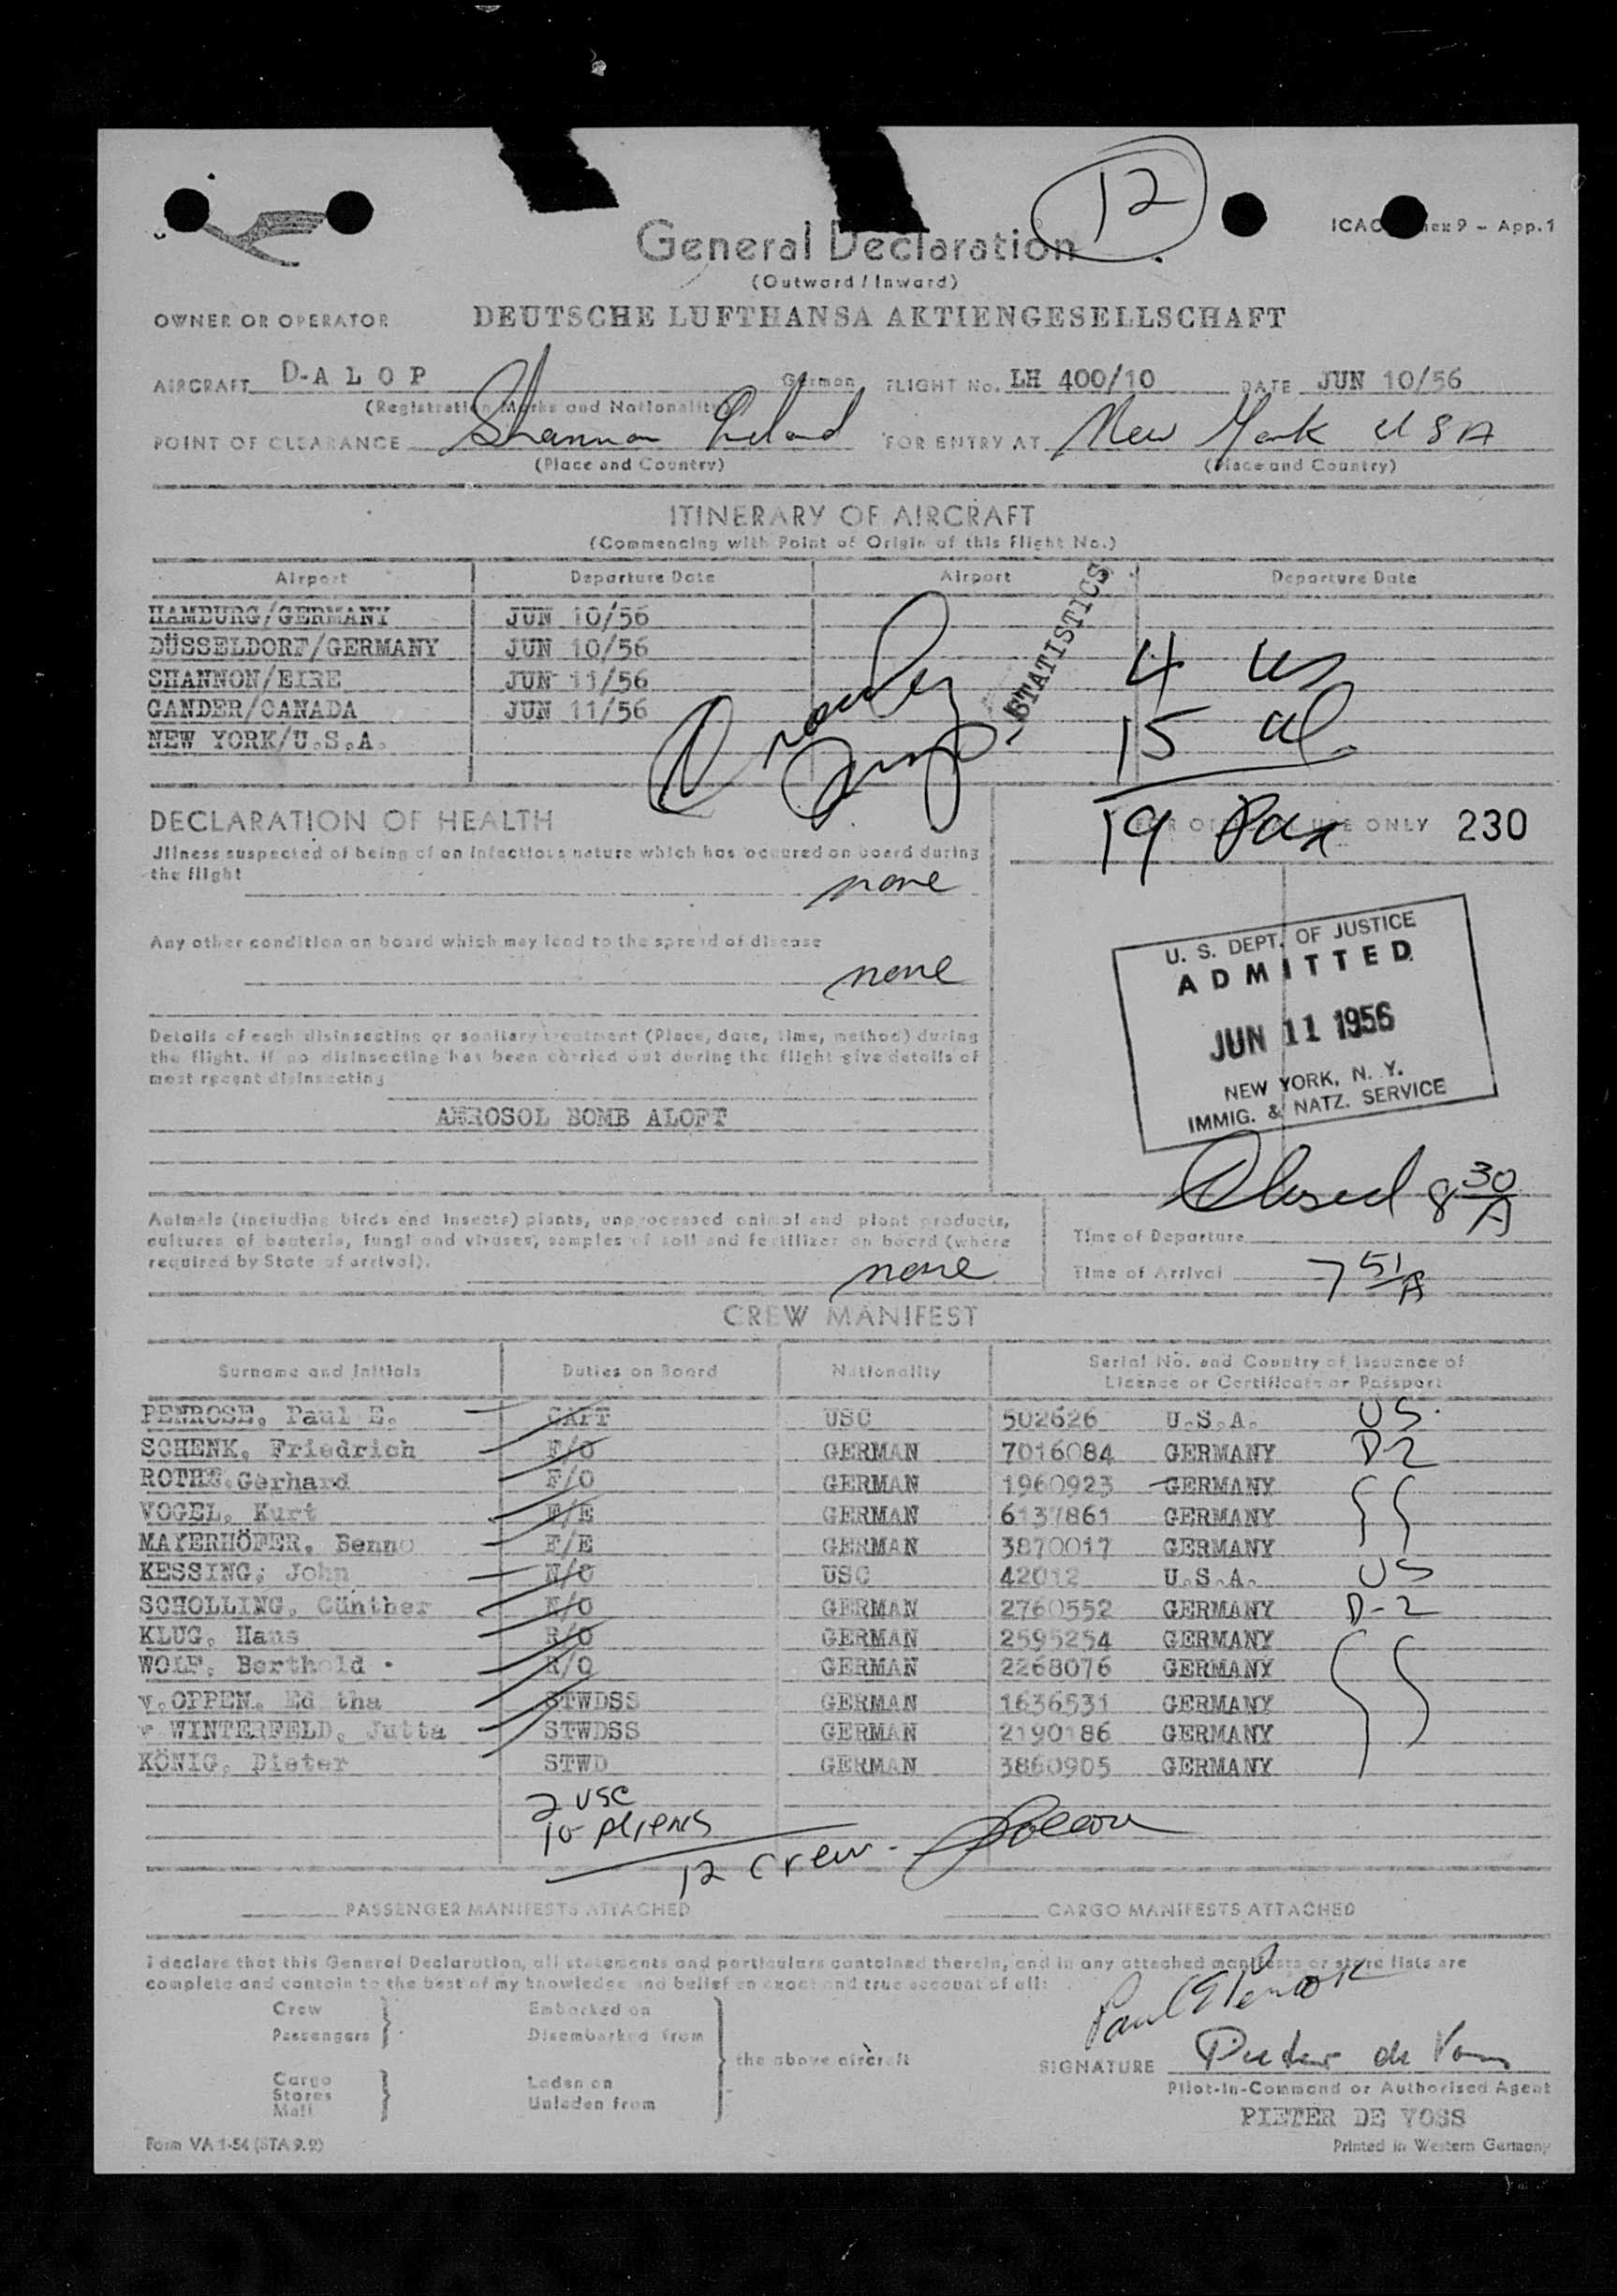 12
ICAO Annex 9 - App. 1
General Declaration
(Outward / Inward)
OWNER OR OPERATOR DEUTSCHE LUFTHANSA AKTIENGESELLSCHAFT
AIRCRAFT D-A L O P German FLIGHT No. LH 400/10 DATE JUN 10/56
(Registration Marks and Nationality)
POINT OF CLEARANCE Shannon Ireland FOR ENTRY AT New York U S A
(Place and Country) (Place and Country)
ITINERARY OF AIRCRAFT
(Commencing with Point of Origin of this Flight No.)
Airport Departure Date Airport Departure Date
HAMBURG/GERMANY JUN 10/56
DÜSSELDORF/GERMANY JUN 10/56
SHANNON/EIRE JUN 11/56
GANDER/CANADA JUN 11/56
NEW YORK/U.S.A.
STATISTICS
4 us
15 al.
19 Pax
DECLARATION OF HEALTH
FOR OFFICIAL USE ONLY 230
Jllness suspected of being of an infectious nature which has occured on board during
the flight
none
Any other condition on board which may lead to the spread of disease
none
Details of each disinsecting or sanitary treatment (Place, date, time, method) during
the flight. If no disinsecting has been carried out during the flight give details of
most recent disinsecting
AEROSOL BOMB ALOFT
U. S. DEPT. OF JUSTICE
ADMITTED
JUN 11 1956
NEW YORK, N. Y.
IMMIG. & NATZ. SERVICE
Closed 8 30/A
Animals (including birds and insects) plants, unprocessed animal and plant products,
cultures of bacteria, fungi and viruses, samples of soil and fertilizer on board (where
required by State of arrival).
none
Time of Departure
Time of Arrival 7 51/A
CREW MANIFEST
Surname and Jnitials Duties on Board Nationality Serial No. and Country of Issuance of
Licence or Certificate or Passport
PENROSE, Paul E. CAPT USC 502626 U.S.A. US.
SCHENK, Friedrich F/O GERMAN 7016084 GERMANY D-2
ROTHE, Gerhard F/O GERMAN 1960923 GERMANY
VOGEL, Kurt F/E GERMAN 6137861 GERMANY
MAYERHÖFER, Benno F/E GERMAN 3870017 GERMANY
KESSING, John N/O USC 42012 U.S.A. US
SCHOLLING, Günther N/O GERMAN 2760552 GERMANY D-2
KLUG, Hans R/O GERMAN 2595254 GERMANY
WOLF, Berthold R/O GERMAN 2268076 GERMANY
v.OPPEN, Ed tha STWDSS GERMAN 1636531 GERMANY
v WINTERFELD, Jutta STWDSS GERMAN 2190186 GERMANY
KÖNIG, Dieter STWD GERMAN 3860905 GERMANY
2 USC
10 Aliens
12 Crew
PASSENGER MANIFESTS ATTACHED CARGO MANIFESTS ATTACHED
I declare that this General Declaration, all statements and particulars contained therein, and in any attached manifests or store lists are
complete and contain to the best of my knowledge and belief an exact and true account of all:
Crew Embarked on
Passengers Disembarked from
the above aircraft
Cargo Laden on
Stores
Mail Unladen from
Paul E Penrose
SIGNATURE Pieter de Voss
Pilot-in-Command or Authorised Agent
PIETER DE VOSS
Form VA 1-54 (STA 9.2) Printed in Western Germany